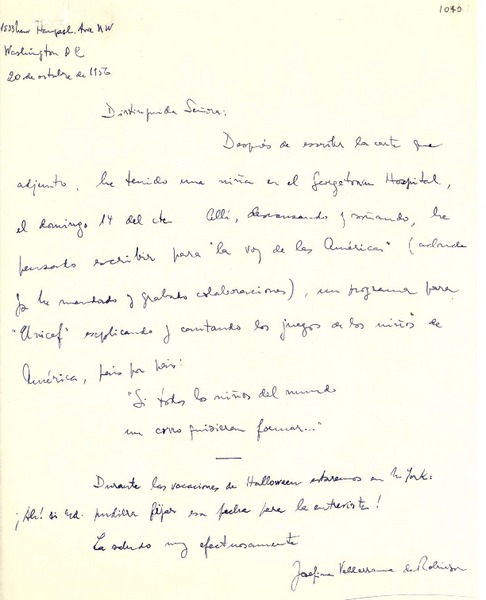 1040
1533 New Hampsh. Ave NW
Washington D C
20 de octubre de 1956
Distinguida Señora:
Después de escribir la carta que
adjunto, he tenido una niña en el Georgetown Hospital,
el domingo 14 del cte. Allí, descansando y soñando, he
pensado escribir para "la voz de las Américas" (adonde
ya he mandado y grabado colaboraciones), un programa para
"Unicef" explicando y contando los juegos de los niños de
América, país por país:
"Si todos los niños del mundo
un corro quisieran formar..."
Durante las vacaciones de Halloween estaremos en N. York.
¡Ah! si Ud. pudiera fijar esa fecha para la entrevista!
La saluda muy afectuosamente
Josefina de Robinson